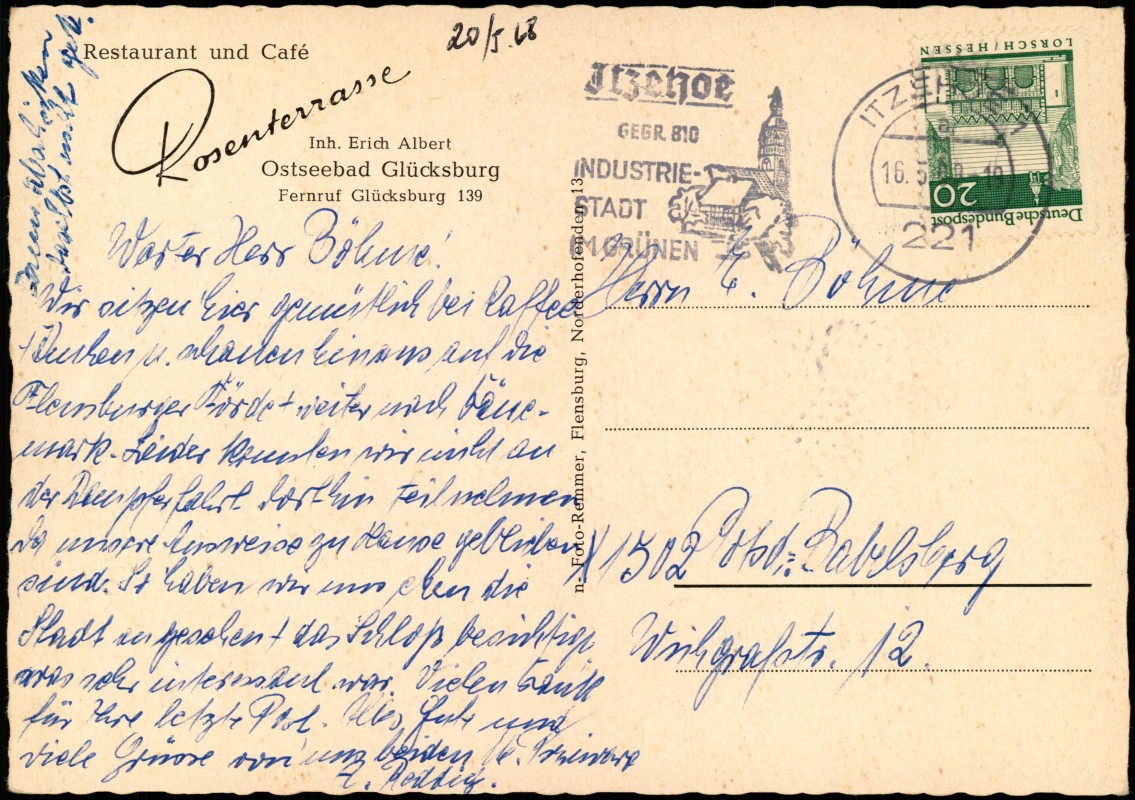 20/5.68
Restaurant und Café
Rosenterrasse
Inh. Erich Albert
Ostseebad Glücksburg
Fernruf Glücksburg 139
Itzehoe
GEGR. 810
INDUSTRIE-
STADT
IM GRÜNEN
ITZEHOE 1
a
16.5.68-16
221
LORSCH/HESSEN
20
Deutsche Bundespost
Werter Herr Böhme!
Wir sitzen hier gemütlich bei Kaffee
+ Kuchen u. schauen hinaus auf die
Flensburger Förde + weiter nach Däne-
mark. Leider konnten wir nicht an
der Dampferfahrt dorthin teilnehmen
da unsere Ausweise zu Hause geblieben
sind. So haben wir uns eben die
Stadt angesehen + das Schloß besichtigt
was sehr interessant war. Vielen Dank
für Ihre letzte Post. Alles Gute und
viele Grüsse von uns beiden
n.- Foto-Remmer, Flensburg, Norderhofenden 13
Herrn E. Böhme
1502 Psd.-Babelsberg
Wichgrafstr. 12.